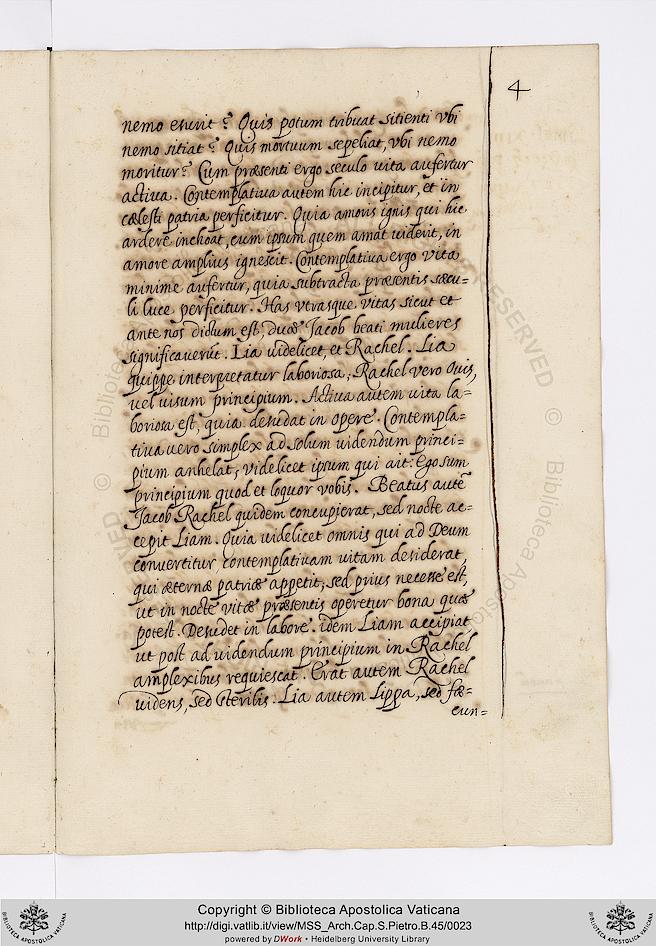 4
nemo esurit? Quis potum tribuat sitienti vbi
nemo sitiat? Quis mortuum sepeliat, vbi nemo
moritur? Cum præsenti ergo seculo vita aufertur
actiua. Contemplatiua autem hic incipitur, et in
cælesti patria perficitur. Quia amoris ignis qui hic
ardere inchoat, cum ipsum quem amat uiderit, in
amore amplius ignescit. Contemplatiua ergo vita
minime aufertur, quia subtracta præsentis sæcu-
li luce perficitur. Has vtrasque vitas sicut et
ante nos dictum est, duæ Jacob beati mulieres
significauerūt. Lia uidelicet, et Rachel. Lia
quippe interpretatur laboriosa; Rachel vero Ouis,
uel uisum principium. Actiua autem uita la-
boriosa est, quia desudat in opere. Contempla-
tiua uero simplex ad solum uidendum princi-
pium anhelat, videlicet ipsum qui ait: Ego sum
principium quod et loquor vobis. Beatus autē
Jacob Rachel quidem concupierat, sed nocte ac-
cepit Liam. Quia uidelicet omnis qui ad Deum
conuertitur contemplatiuam uitam desiderat,
qui æternæ patriæ appetit; sed prius necesse est,
ut in nocte vitæ præsentis operetur bona quæ
potest. Desudet in labore. idem Liam accipiat
ut post ad uidendum principium in Rachel
amplexibus requiescat. Erat autem Rachel
uidens, sed sterilis. Lia autem Lippa, sed fæ-
cun-
© Biblioteca Apostolica
RESERVED © Biblioteca Aposto
Copyright © Biblioteca Apostolica Vaticana
http://digi.vatlib.it/view/MSS_Arch.Cap.S.Pietro.B.45/0023
powered by DWork • Heidelberg University Library
BIBLIOTECA APOSTOLICA VATICANA
BIBLIOTECA APOSTOLICA VATICANA